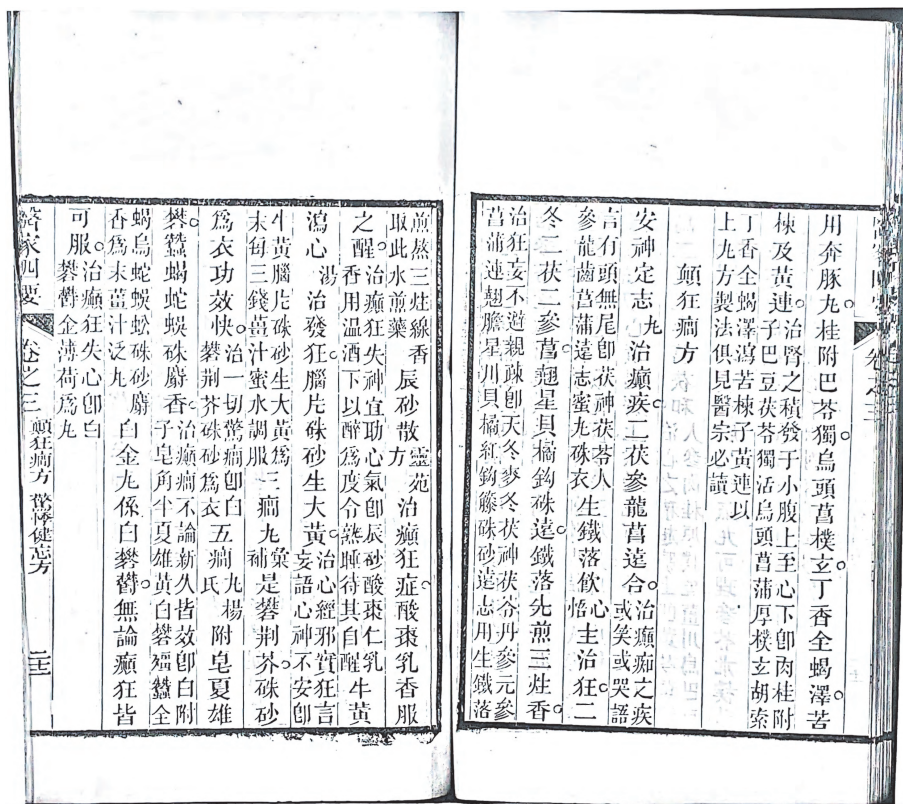 用奔豚丸。桂附巴苓獨。烏頭菖樸玄。丁香全蝎澤。苦
楝及黃連。治腎之積發于小腹上至心下卽肉桂附
子巴豆茯苓獨活烏頭菖蒲厚樸玄胡索
丁香全蝎澤瀉苦楝子黃連以
上九方製法俱見醫宗必讀
顛狂癎方
安神定志丸治癲疾。二茯參龍菖遠合。治癲痴之疾
或笑或哭語
言有頭無尾卽茯神茯苓人
參龍齒菖蒲遠志蜜丸硃衣
生鐵落飲心悟主治狂。二
冬二茯二參菖。翹星貝橘鈎硃遠。鐵落先煎三炷香
治狂妄不避親疎卽天冬麥冬茯神茯苓丹參元參
菖蒲連翹膽星川貝橘紅鈎籐硃砂遠志用生鐵落
煎熬三炷線香
取此水煎藥
辰砂散靈苑方治癲狂症。酸棗乳香服
之醒。治癲狂失神宜功心氣卽辰砂酸棗仁乳
香用溫酒下以醉爲度令熟睡待其自醒
牛黃
瀉心湯治發狂。腦片硃砂生大黃。治心經邪實狂言
妄語心神不安卽
牛黃腦片硃砂生大黃爲
末每三錢薑汁蜜水調服
三癎丸彙補是礬荆芥。硃砂
爲衣功效快。治一切驚癎卽白
礬荆芥硃砂爲衣
五癎丸楊氏附皂夏雄
礬。蠶蝎蛇蜈硃麝香。治癲癎不論新久皆效卽白附
子皂角半夏雄黃白礬殭蠶全
蝎烏蛇蜈蚣硃砂麝
香爲末薑汁泛丸
白金丸係白礬鬱。無論癲狂皆
可服。治癲狂失心卽白
礬鬱金薄荷爲丸
醫家四要 卷之三 顛狂癎方 驚悸健忘方